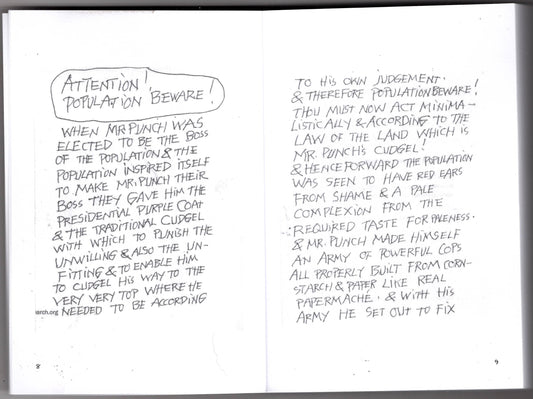 ATTENTION!
POPULATION BEWARE!
WHEN MR PUNCH WAS
ELECTED TO BE THE BOSS
OF THE POPULATION & THE
POPULATION INSPIRED ITSELF
TO MAKE MR. PUNCH THEIR
BOSS THEY GAVE HIM THE
PRESIDENTIAL PURPLE COAT
& THE TRADITIONAL CUDGEL
WITH WHICH TO PUNISH THE
UNWILLING & ALSO THE UN-
FITTING & TO ENABLE HIM
TO CUDGEL HIS WAY TO THE
VERY VERY TOP WHERE HE
NEEDED TO BE ACCORDING
arch.org
8
TO HIS OWN JUDGEMENT.
& THEREFORE POPULATION BEWARE!
THOU MUST NOW ACT MINIMA-
LISTICALLY & ACCORDING TO THE
LAW OF THE LAND WHICH IS
MR. PUNCH'S CUDGEL!
& HENCEFORWARD THE POPULATION
WAS SEEN TO HAVE RED EARS
FROM SHAME & A PALE
COMPLEXION FROM THE
REQUIRED TASTE FOR PALENESS.
& MR. PUNCH MADE HIMSELF
AN ARMY OF POWERFUL COPS
ALL PROPERLY BUILT FROM CORN-
STARCH & PAPER LIKE REAL
PAPERMACHE. & WITH HIS
ARMY HE SET OUT TO FIX
9